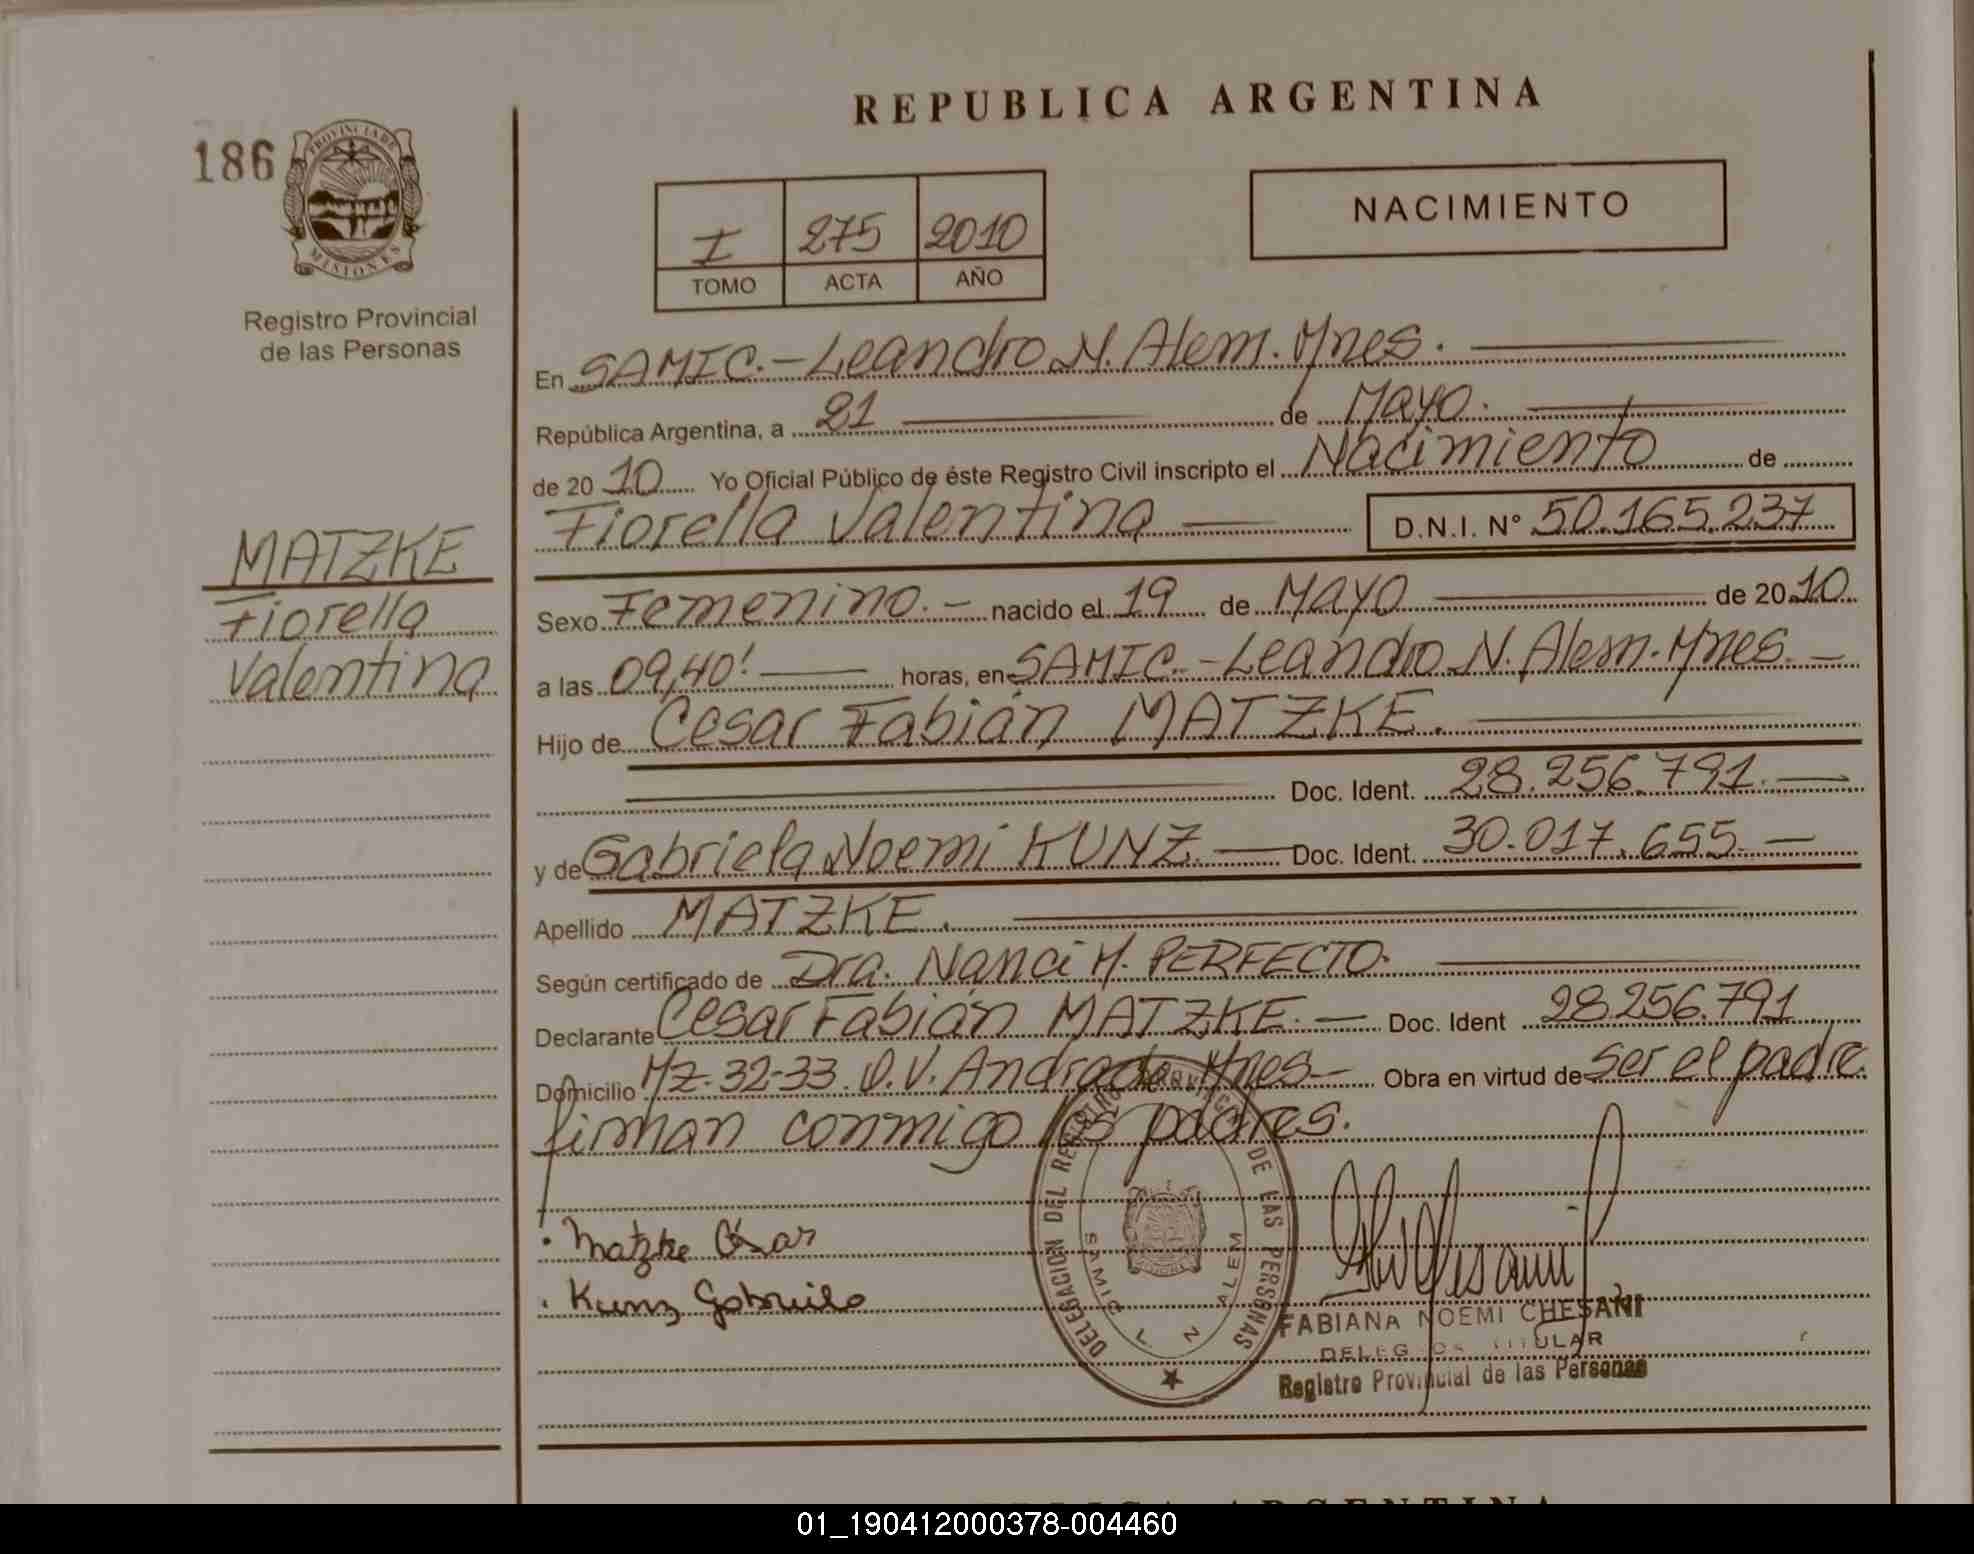 REPUBLICA ARGENTINA
186
PROVINCIA DE
MISIONES
Registro Provincial
de las Personas
NACIMIENTO
I 275 2010
TOMO ACTA AÑO
En SAMIC.-Leandro N. Alem. Mnes.
República Argentina, a 21 de Mayo.
de 2010 Yo Oficial Público de éste Registro Civil inscripto el Nacimiento de
Fiorella Valentina D.N.I. N° 50.165.237
MATZKE
Fiorella
Valentina
Sexo Femenino.- nacido el 19 de MAYO de 2010
a las 09,40! horas, en SAMIC.-Leandro N. Alem. Mnes.-
Hijo de Cesar Fabián MATZKE.
Doc. Ident. 28.256.791.
y de Gabriela Noemi KUNZ. Doc. Ident. 30.017.655.-
Apellido MATZKE.
Según certificado de Dra. Nanci M. PERFECTO.
Declarante Cesar Fabián MATZKE.- Doc. Ident 28.256.791
Domicilio Mz. 32-33. O.V. Andrade Mnes- Obra en virtud de ser el padre.
firman conmigo los padres.
. Matzke César
. Kunz Gabriela
DELEGACION DEL REGISTRO PROVINCIAL DE LAS PERSONAS
SAMIC L. N. ALEM
FABIANA NOEMI CHESANI
TITULAR
Registro Provincial de las Personas
ARGENTINA
01_190412000378-004460